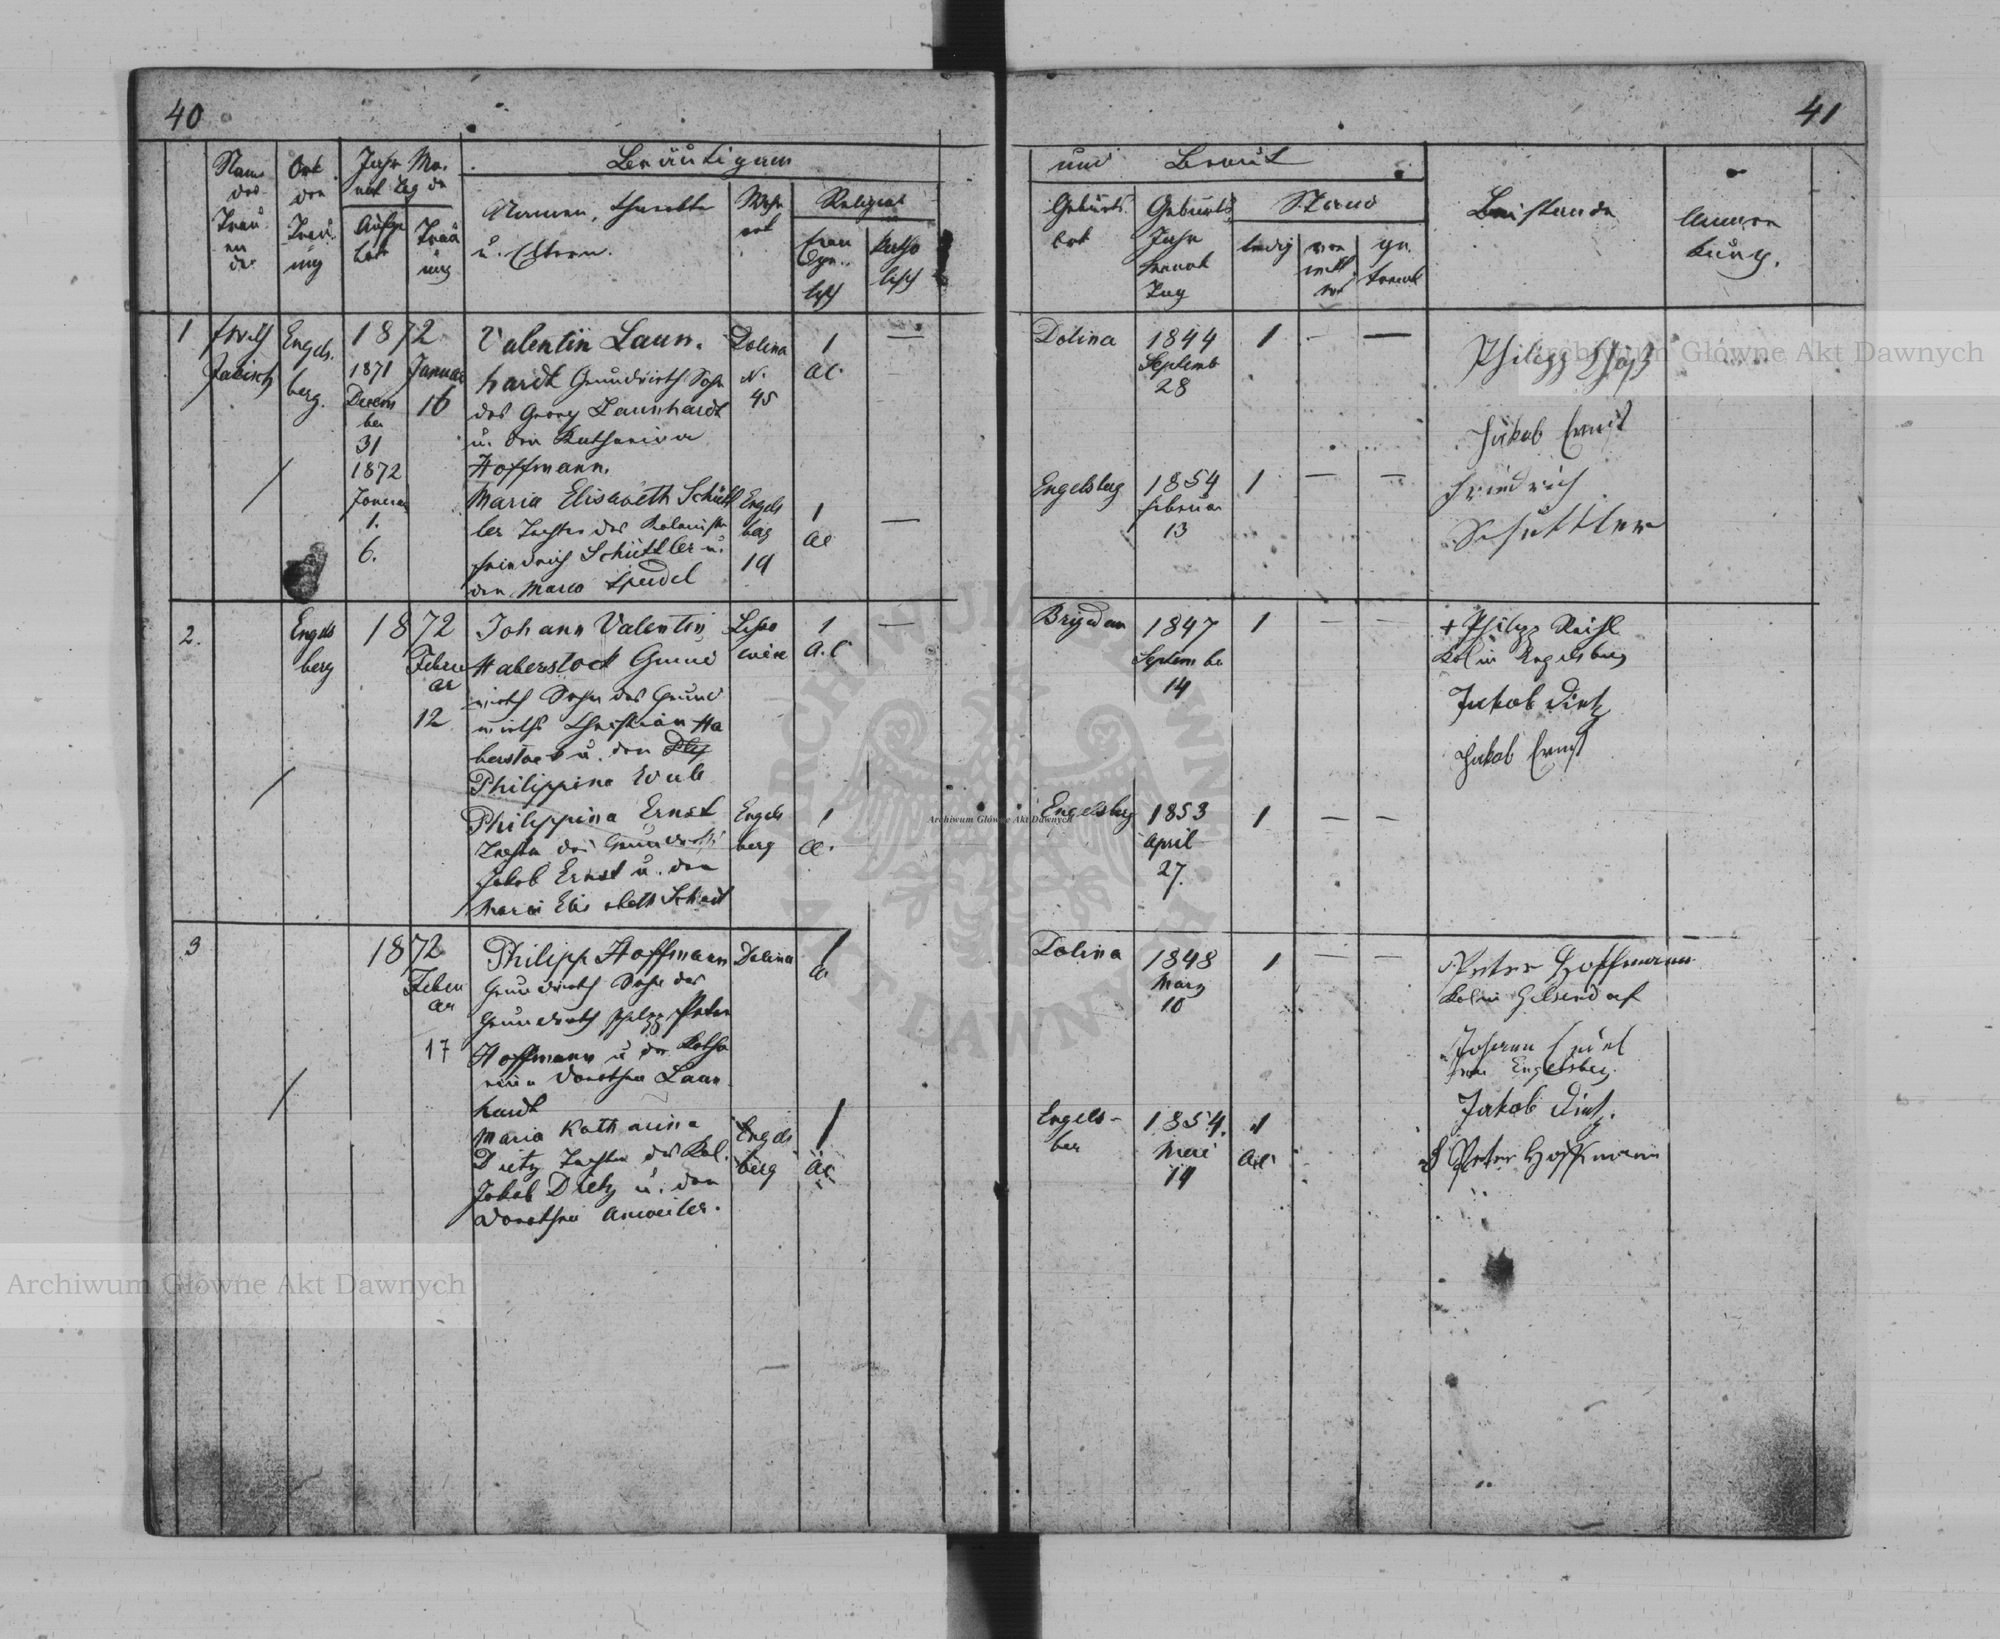 40
41
Bräutigam
und Braut
Name des Trau en de
Ort der Trau ung
Jahr Mo. nat Tag der
Aufge bot
Trau ung
Namen, Charakter
u. Eltern.
Wohn ort
Religion
Evan gel. isch
Katho lisch
Geburts Ort
Geburts Jahr Monat Tag
Stand
ledig
ver witt wet
ge. trennt
Beistande
Anmer kung.
1
Jabisch
Engels. berg.
1872
1871
Decem ber
31
1872
Januar
1.
6.
Januar
16
Valentin Laun.
hardt Grundwirth Sohn
des Georg Launhardt
u. der Katharina
Hoffmann.
Dolina
N.
45
1
AC.
—
Dolina
1844
Septemb
28
1
—
—
Philipp
Jakob Ernst
Maria Elisabeth Schütt
ler Tochter des Kolonisten
Friedrich Schüttler u.
der Maria Speidel
Engels
berg
19
1
AC
—
Engelsberg
1854
Februar
13
1
—
—
Friedrich
Schüttler
2.
Engels
berg
1872
Febru
ar
12
Johann Valentin
Haberstock Grund
wirth Sohn des Grund
wirths Christian Ha
berstock u. der
Philippina
1
A.C
—
1847
Septembe
14
1
—
—
+ Philipp
Kol in Engelsberg
Jakob Dietz
Jakob Ernst
Philippina Ernst
Tochter des Grundwirths
Jakob Ernst u. der
Maria Elisabeth
Engels
berg
1
AC.
Engelsberg
1853
April
27.
1
—
—
3
1872
Febru
ar
17
Philipp Hoffmann
Grundwirth Sohn des
Grundwirth Philipp Peter
Hoffmann u der Katha
rina Dorothea Laun
hardt
Dolina
1
AC
Dolina
1848
März
10
1
—
—
Peter Hoffmann
Kol in Gelsendorf
Johann
von Engelsberg.
Jakob Dietz.
Peter Hoffmann
Maria Katharina
Dietz Tochter des Kol.
Jakob Dietz u. der
Dorothea Anweiler.
Engels
berg
1
AC
Engels-
ber
1854.
Mai
19
1
AC
Archiwum Główne Akt Dawnych
Archiwum Główne Akt Dawnych
Archiwum Główne Akt Dawnych
ARCHIWUM GŁÓWNE
AKT DAWNYCH